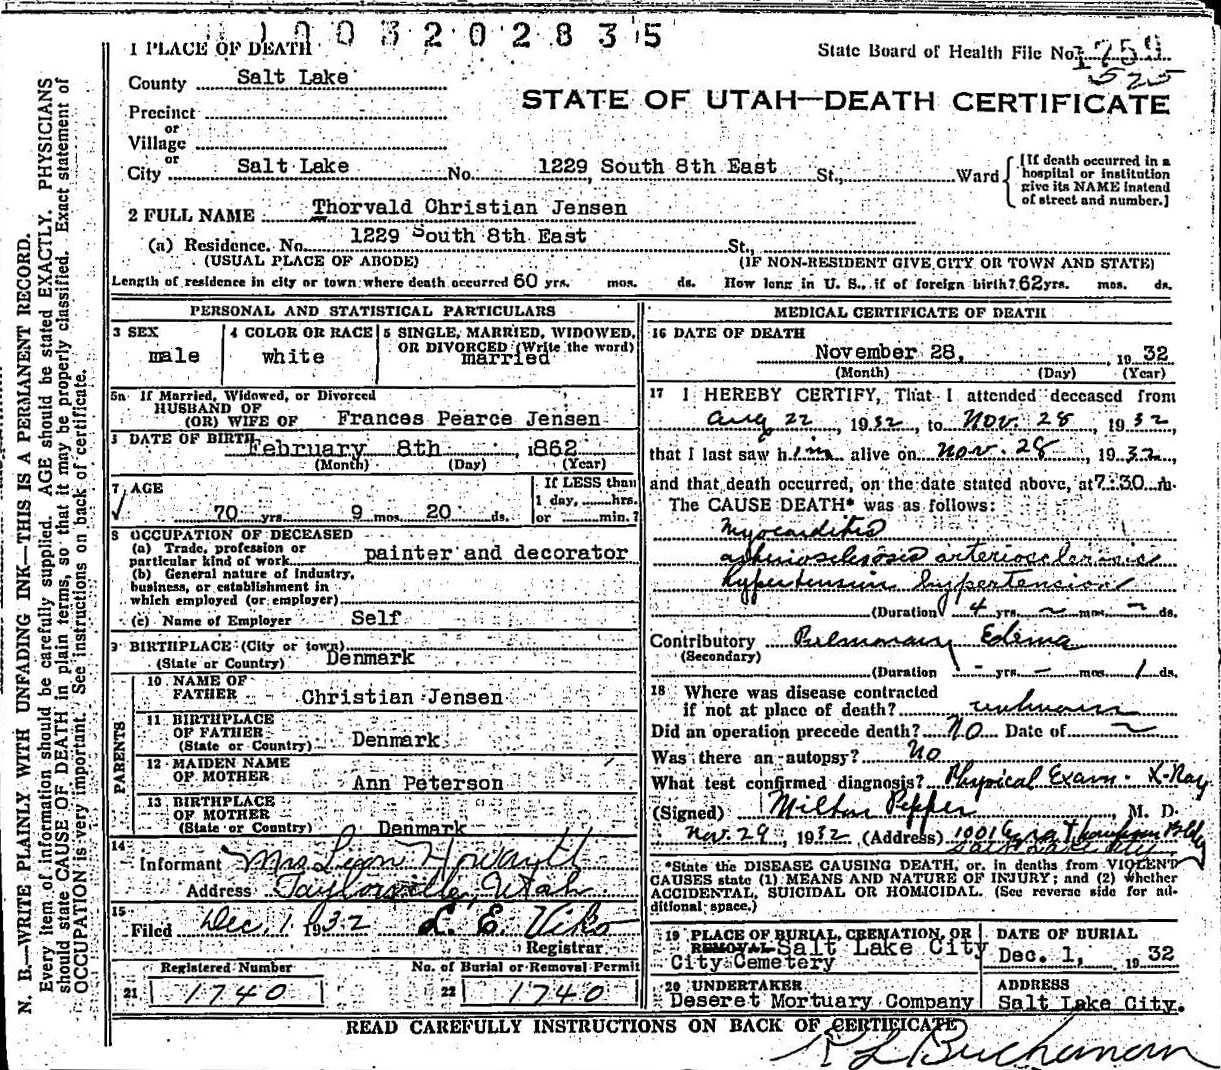 1003202835
1 PLACE OF DEATH
State Board of Health File No. 1759
525
County Salt Lake
STATE OF UTAH—DEATH CERTIFICATE
Precinct
or
Village
or
City Salt Lake No. 1229 South 8th East St., Ward
[If death occurred in a hospital or institution give its NAME instead of street and number.]
2 FULL NAME Thorvald Christian Jensen
(a) Residence. No. 1229 South 8th East St.
(USUAL PLACE OF ABODE) (IF NON-RESIDENT GIVE CITY OR TOWN AND STATE)
Length of residence in city or town where death occurred 60 yrs. mos. ds. How long in U. S., if of foreign birth? 62 yrs. mos. ds.
PERSONAL AND STATISTICAL PARTICULARS
3 SEX
male
4 COLOR OR RACE
white
5 SINGLE, MARRIED, WIDOWED,
OR DIVORCED (Write the word)
married
5a If Married, Widowed, or Divorced
HUSBAND OF
(OR) WIFE OF Frances Pearce Jensen
DATE OF BIRTH February 8th, 1862
(Month) (Day) (Year)
7 AGE
70 yrs. 9 mos. 20 ds.
If LESS than
1 day, hrs.
or min.?
8 OCCUPATION OF DECEASED
(a) Trade, profession or
particular kind of work painter and decorator
(b) General nature of Industry,
business, or establishment in
which employed (or employer)
(c) Name of Employer Self
9 BIRTHPLACE (City or town)
(State or Country) Denmark
PARENTS
10 NAME OF
FATHER Christian Jensen
11 BIRTHPLACE
OF FATHER
(State or Country) Denmark
12 MAIDEN NAME
OF MOTHER Ann Peterson
13 BIRTHPLACE
OF MOTHER
(State or Country) Denmark
14
Informant Mrs Leon Howarth
Address Taylorsville, Utah
15
Filed Dec, 1 1932 L. E. Viko
Registrar
Registered Number
21 1740
No. of Burial or Removal Permit
22 1740
MEDICAL CERTIFICATE OF DEATH
16 DATE OF DEATH
November 28, 1932
(Month) (Day) (Year)
17 I HEREBY CERTIFY, That I attended deceased from
Aug 22, 1932, to Nov. 28, 1932,
that I last saw him alive on Nov. 28, 1932,
and that death occurred, on the date stated above, at 7:30 A.
The CAUSE DEATH* was as follows:
Myocarditis
arteriosclerosis arteriosclerosis
hypertension hypertension
(Duration 4 yrs. — mos. — ds.
Contributory Pulmonary Edema
(Secondary)
(Duration - yrs. — mos. 1 ds.
18 Where was disease contracted
if not at place of death? unknown
Did an operation precede death? NO Date of —
Was there an autopsy? NO
What test confirmed diagnosis? Physical Exam. X-Ray
(Signed) Milton Pepper, M. D.
Nov. 29, 1932 (Address) 1001 Bldg
Salt Lake City
*State the DISEASE CAUSING DEATH, or, in deaths from VIOLENT
CAUSES state (1) MEANS AND NATURE OF INJURY; and (2) whether
ACCIDENTAL, SUICIDAL OR HOMICIDAL. (See reverse side for ad-
ditional space.)
19 PLACE OF BURIAL, CREMATION, OR
REMOVAL Salt Lake City
City Cemetery
DATE OF BURIAL
Dec. 1, 1932
20 UNDERTAKER
Deseret Mortuary Company
ADDRESS
Salt Lake City.
READ CAREFULLY INSTRUCTIONS ON BACK OF CERTIFICATE
R L Buchanan
N. B.—WRITE PLAINLY WITH UNFADING INK—THIS IS A PERMANENT RECORD.
Every item of information should be carefully supplied. AGE should be stated EXACTLY. PHYSICIANS
should state CAUSE OF DEATH in plain terms, so that it may be properly classified. Exact statement of
OCCUPATION is very important. See instructions on back of certificate.